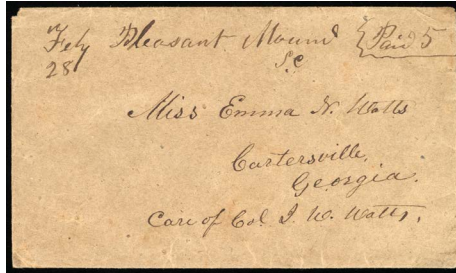 Feby Pleasant Mound Paid 5
28 S.C
Miss Emma N. Watts
Cartersville,
Georgia.
Care of Col. J. W. Watts,